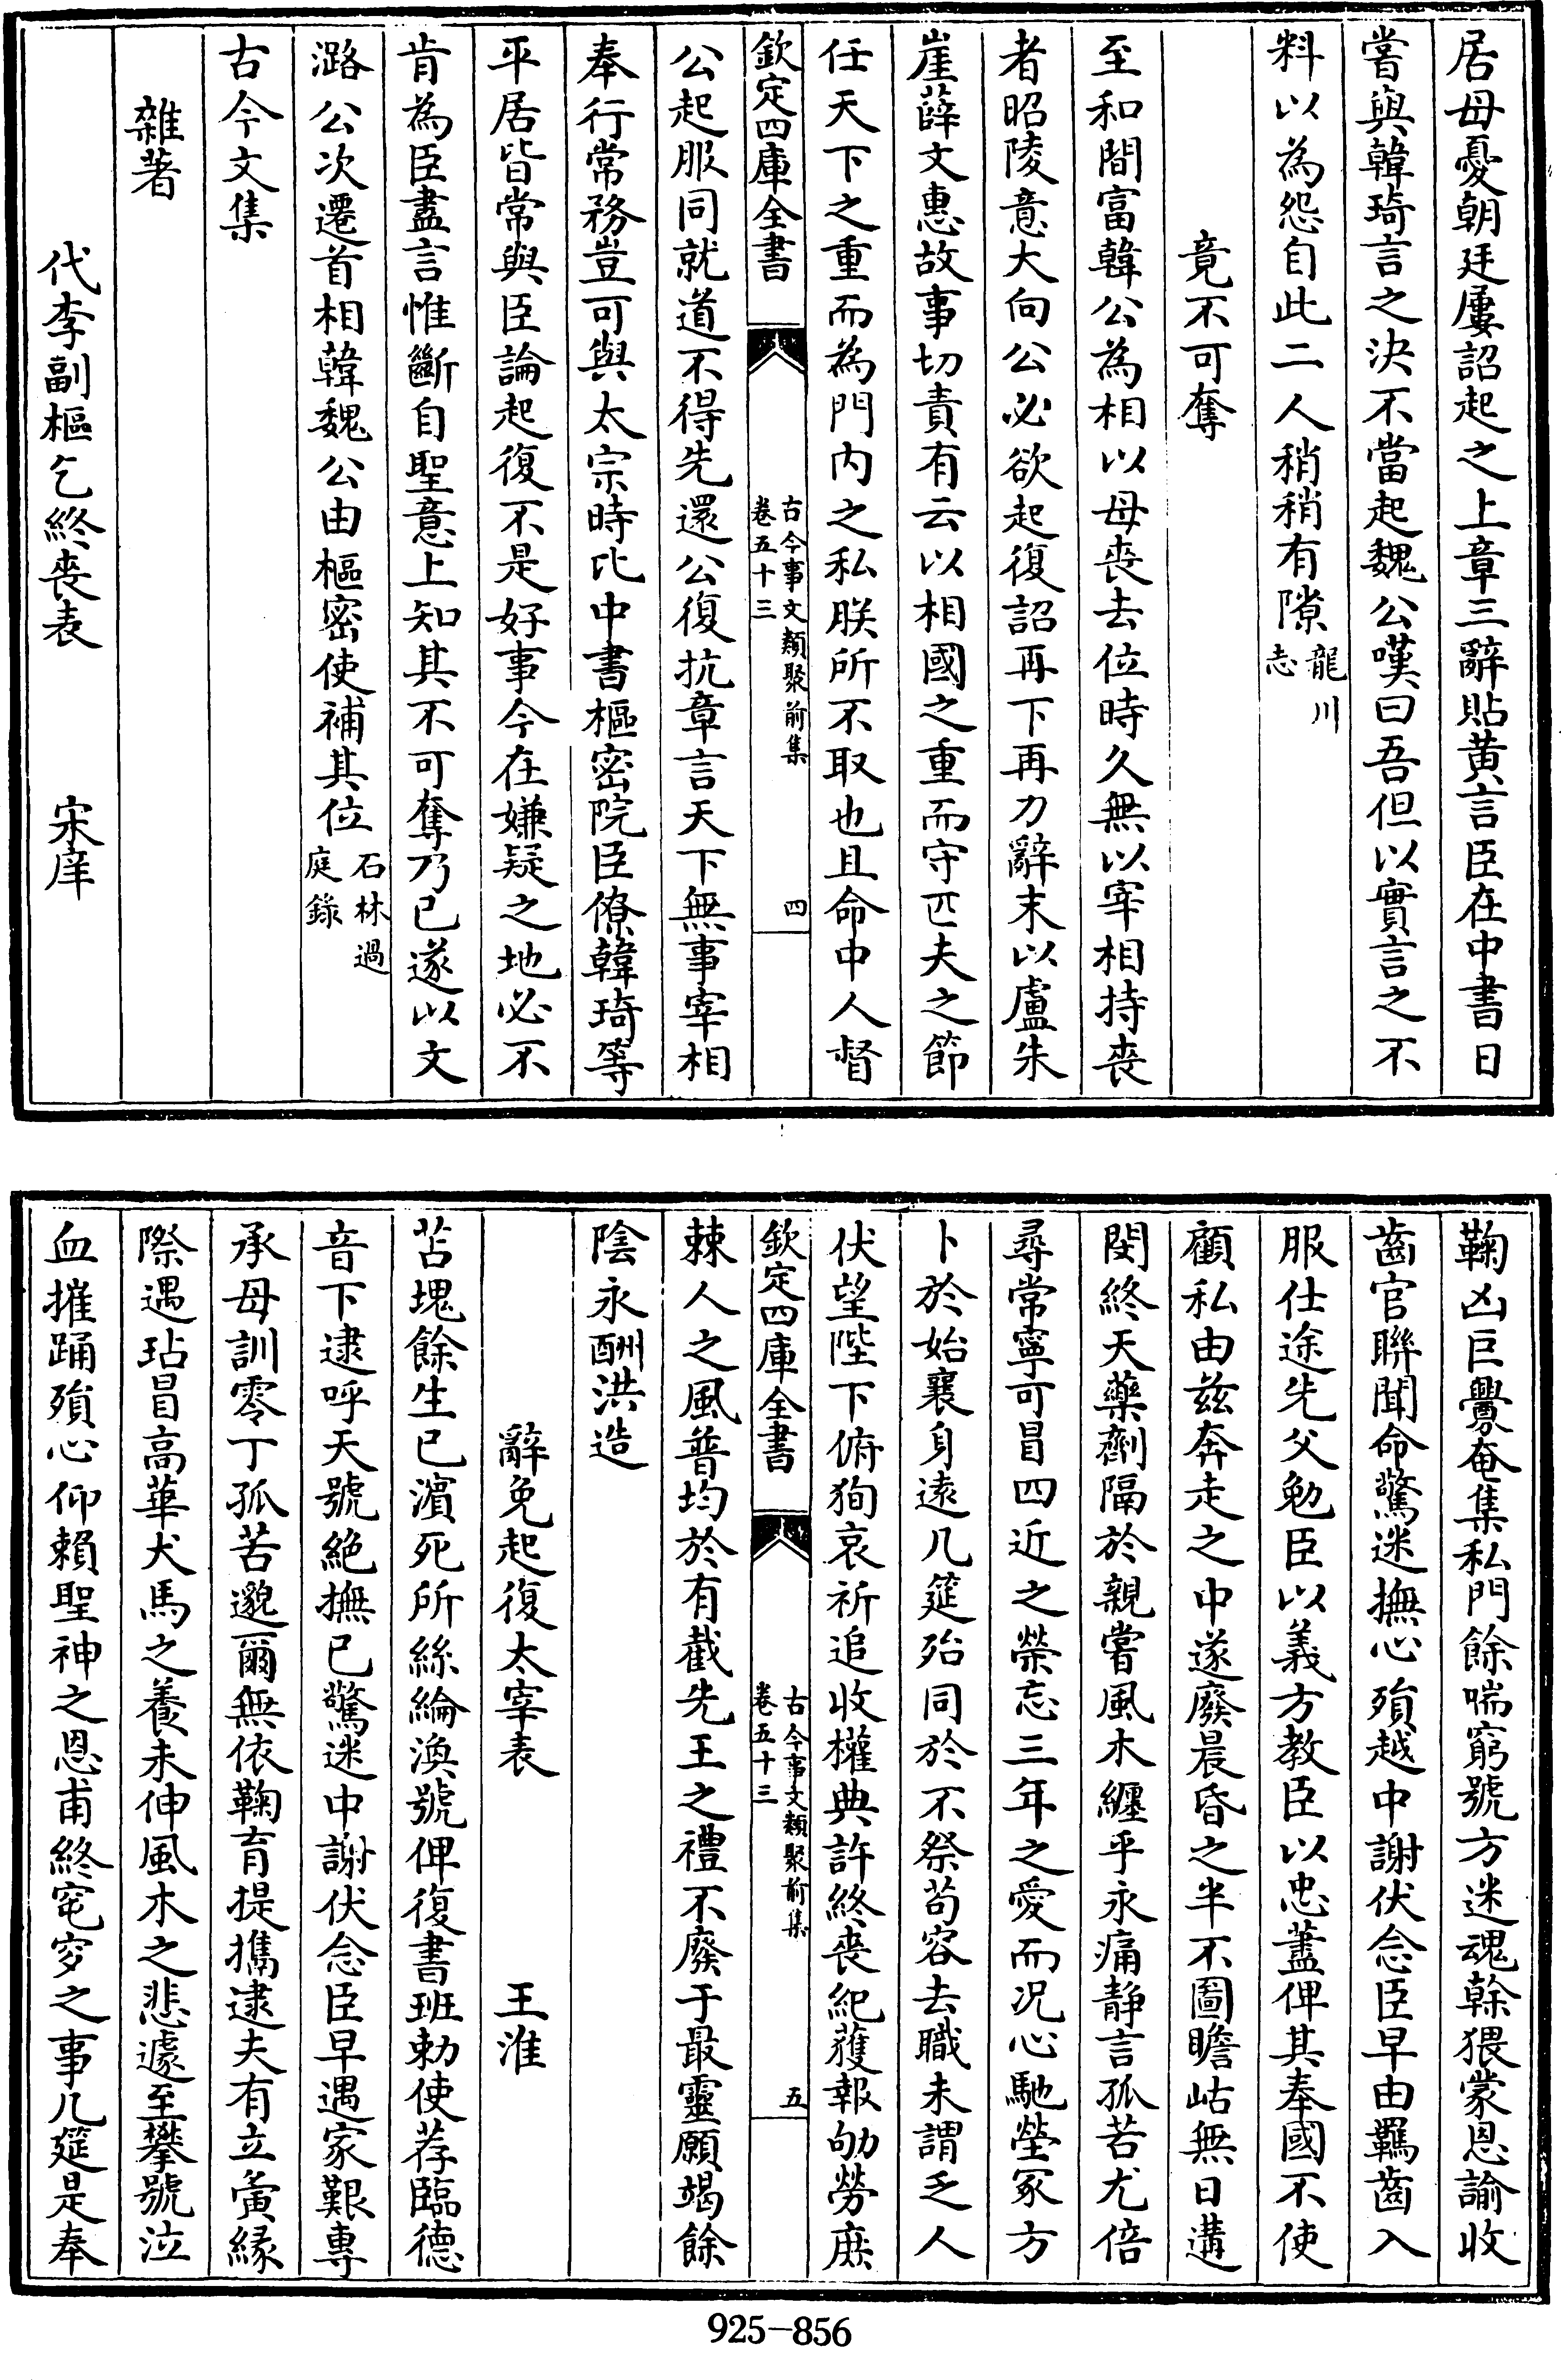 居母憂朝廷屢詔起之上章三辭貼黃言臣在中書日
嘗與韓琦言之決不當起魏公嘆曰吾但以實言之不
料以為怨自此二人稍稍有隙龍川志
竟不可奪
至和間富韓公為相以母喪去位時久無以宰相持喪
者昭陵意大向公必欲起復詔再下再力辭末以盧朱
崖薛文惠故事切責有云以相國之重而守匹夫之節
任天下之重而為門內之私朕所不取也且命中人督
欽定四庫全書
古今事文類聚前集
卷五十三
四
公起服同就道不得先還公復抗章言天下無事宰相
奉行常務豈可與太宗時比中書樞密院臣僚韓琦等
平居皆常與臣論起復不是好事今在嫌疑之地必不
肯為臣盡言惟斷自聖意上知其不可奪乃已遂以文
潞公次遷首相韓魏公由樞密使補其位石林過庭錄
古今文集
雜著
代李副樞乞終喪表 宋庠
鞠凶巨釁奄集私門餘喘窮號方迷魂榦猥蒙恩諭收
齒官聯聞命驚迷撫心殞越中謝伏念臣早由羈齒入
服仕途先父勉臣以義方教臣以忠藎俾其奉國不使
顧私由茲奔走之中遂廢晨昏之半不圖瞻岵無日遘
閔終天藥劑隔於親嘗風木纏乎永痛靜言孤苦尤倍
尋常寧可冒四近之榮忘三年之愛而況心馳塋冢方
卜於始襄身遠几筵殆同於不祭苟容去職未謂乏人
伏望陛下俯狥哀祈追收權典許終喪紀蒦報劬勞庶
欽定四庫全書
古今事文類聚前集
卷五十三
五
棘人之風普均於有截先王之禮不廢于最靈願竭餘
陰永酬洪造
辭免起復太宰表 王淮
苫塊餘生已濱死所絲綸渙號俾復書班勅使荐臨德
音下逮呼天號絕撫已驚迷中謝伏念臣早遇家艱專
承母訓零丁孤苦邈爾無依鞠育提攜逮夫有立夤緣
際遇玷冒高華犬馬之養未伸風木之悲遽至攀號泣
血摧踊殞心仰賴聖神之恩甫終窀穸之事几筵是奉
925-856